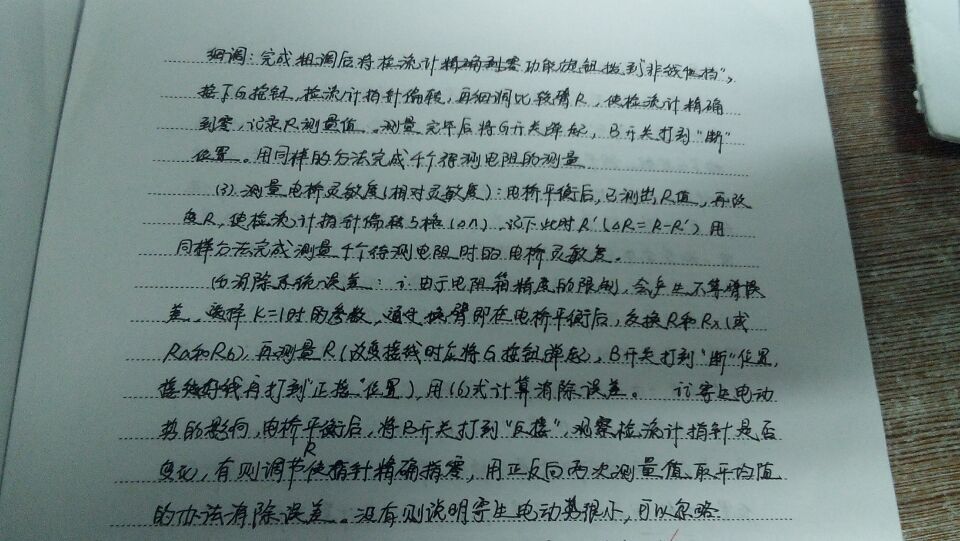 细调：完成粗调后将检流计精确到零功取旋钮拨到“非线性档”，
按下G按钮，检流计指针偏转，再细调比较臂R，使检流计精确
到零，记录R测量值。测量完毕后将G开关弹起，B开关打到“断”
位置。用同样的方法完成4个待测电阻的测量
(3).测量电桥灵敏度(相对灵敏度)：电桥平衡后，已测出R值，再改
变R，使检流计指针偏转5格(△n)，记下此时R'(△R=R-R')用
同样方法完成测量4个待测电阻时的电桥灵敏度。
(4)消除系统误差：i.由于电阻箱精度的限制，会产生不等臂误
差，选择K=1时的参数，通过换臂即在电桥平衡后，交换R和Rx(或
Ra和Rb)，再测量R(改变接线时应将G按钮弹起，B开关打到“断”位置，
接好线再打到“正接”位置)，用(6)式计算消除误差。 ii寄生电动
势的影响，电桥平衡后，将B开关打到“反接”，观察检流计指针是否
变化，有则调节R使指针精确指零，用正反向两次测量值取平均值
的办法消除误差。没有则说明寄生电动势很小，可以忽略